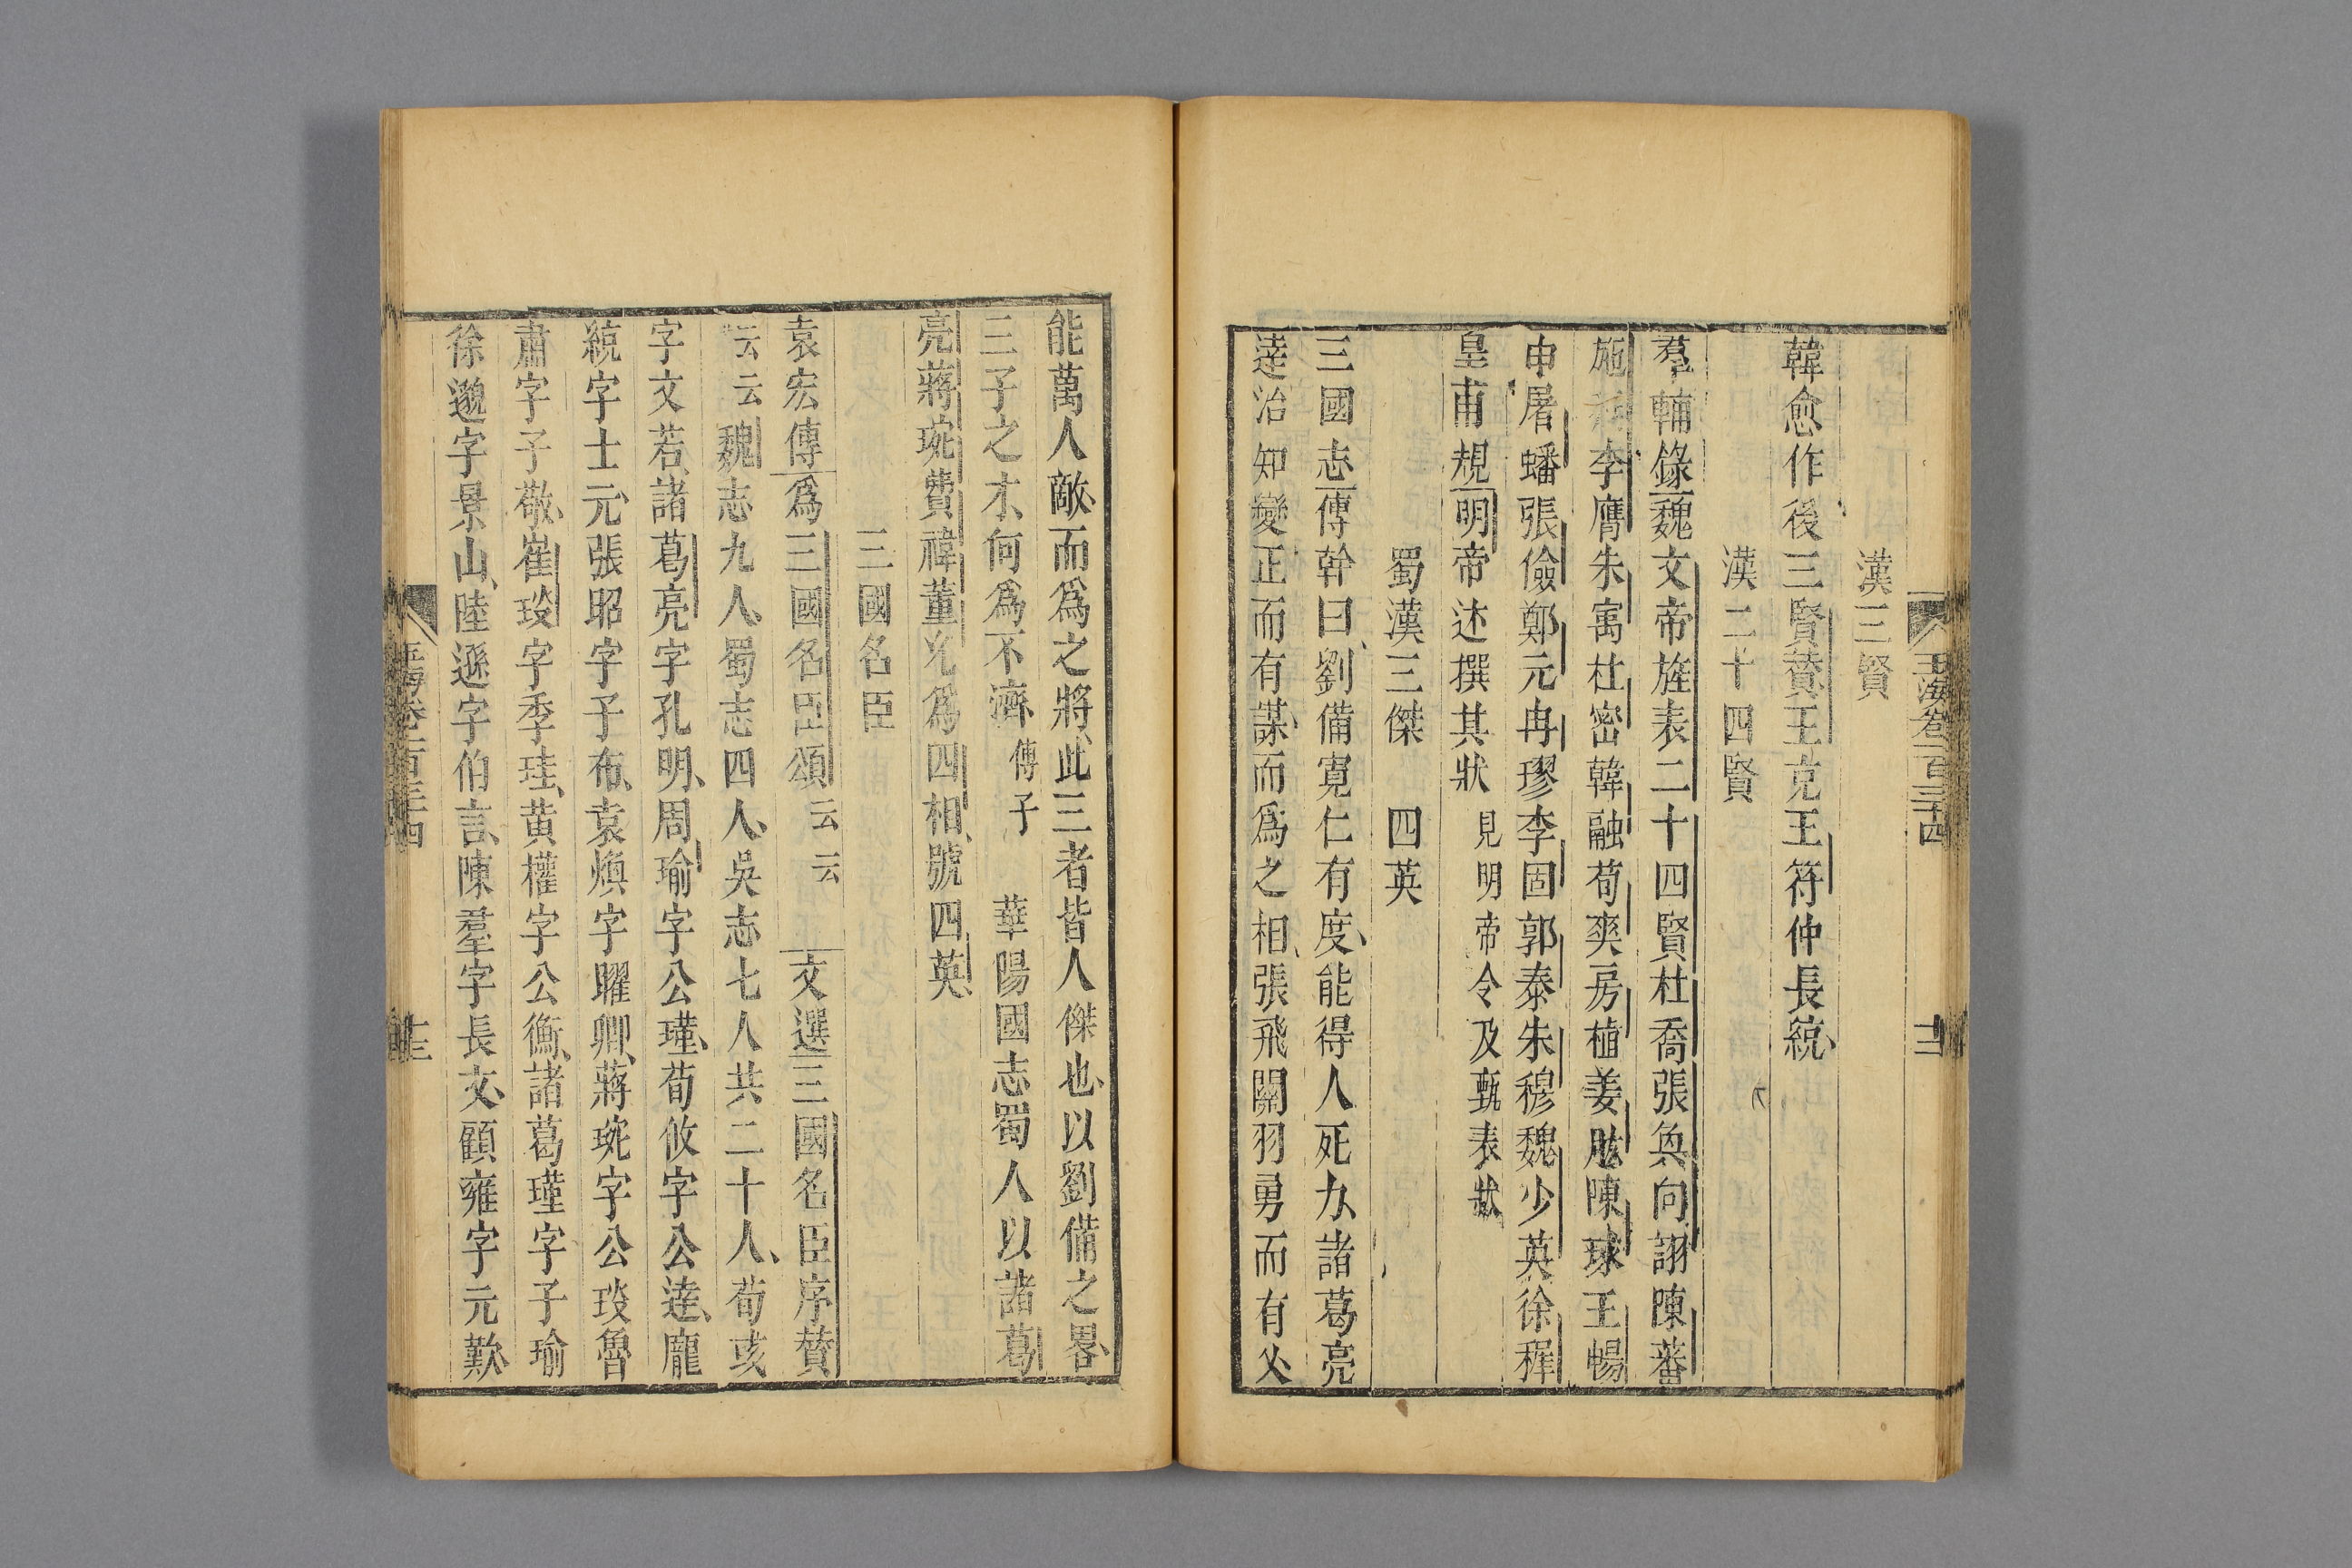 玉海卷一百三十四
十二
漢三賢
韓愈作後三賢贊王充王符仲長統
漢二十四賢
羣輔錄魏文帝旌表二十四賢杜喬張奐向詡陳蕃
施 李膺朱寓杜密韓融荀爽房植姜肱陳球王暢
申屠蟠張儉鄭元冉璆李固郭泰朱穆魏少英徐穉
皇甫規明帝述撰其狀見明帝令及甄表狀
蜀漢三傑 四英
三國志傳幹曰劉備寬仁有度能得人死力諸葛亮
達治知變正而有謀而為之相張飛關羽勇而有义
能萬人敵而為之將此三者皆人傑也以劉備之畧
三子之才何為不濟傅子 華陽國志蜀人以諸葛
亮蔣琬費禕董允為四相號四英
三國名臣
袁宏傳為三國名臣頌云云 文選三國名臣序贊
云云魏志九人蜀志四人吳志七人共二十人荀彧
字文若諸葛亮字孔明周瑜字公瑾荀攸字公達龐
統字士元張昭字子布袁煥字曜卿蔣琬字公琰魯
肅字子敬崔琰字季珪黄權字公衡諸葛瑾字子瑜
徐邈字景山陸遜字伯言陳羣字長文顧雍字元歎
玉海卷一百三十四
十三